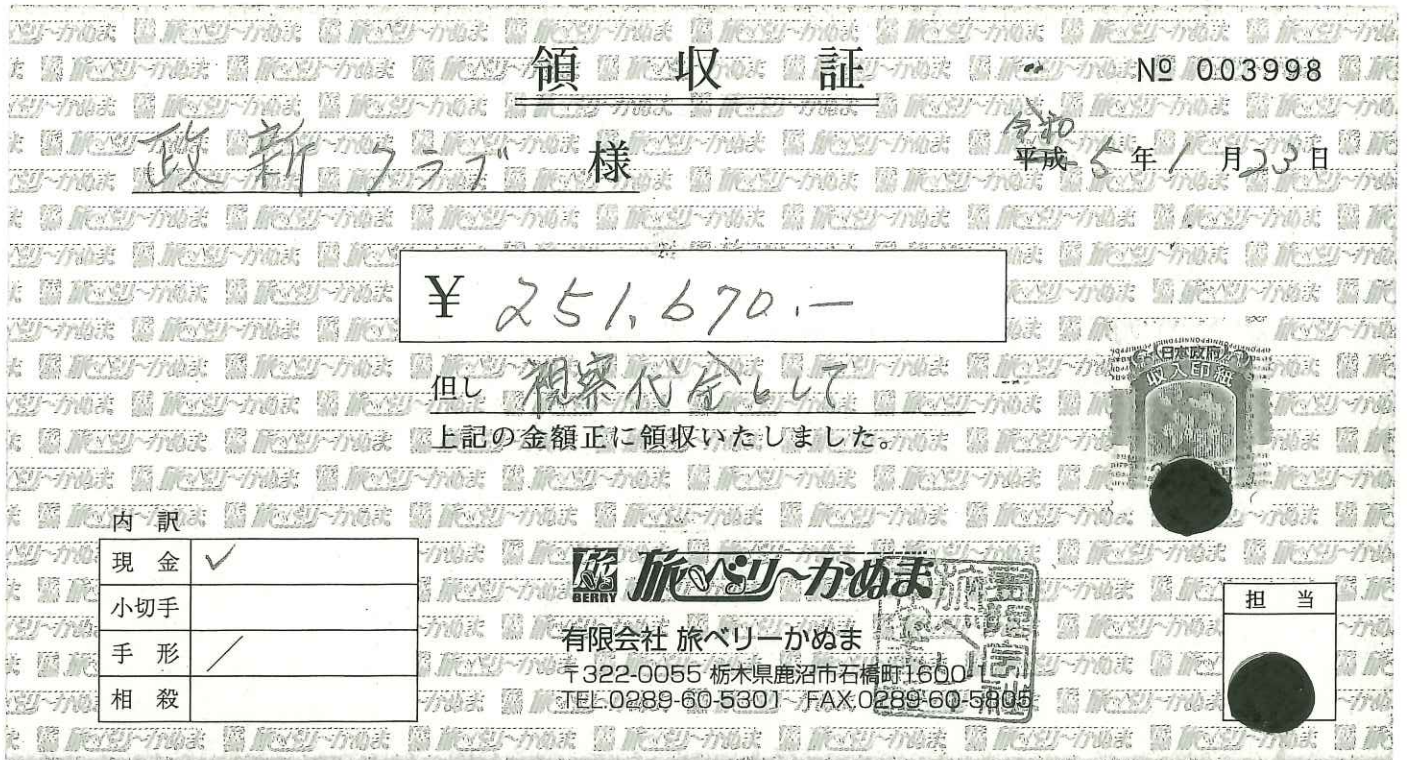 領収証
№ 003998
政新クラブ 様
令和
平成 5年1月23日
¥ 251,670.-
但し 視察代金として
上記の金額正に領収いたしました。
日本政府
収入印紙
内訳
現金 ✓
小切手
手形 /
相殺
旅 BERRY 旅べリ~かぬま
有限会社 旅ベリーかぬま
〒322-0055 栃木県鹿沼市石橋町1600-1
TEL.0289-60-5301 FAX.0289-60-5805
担当